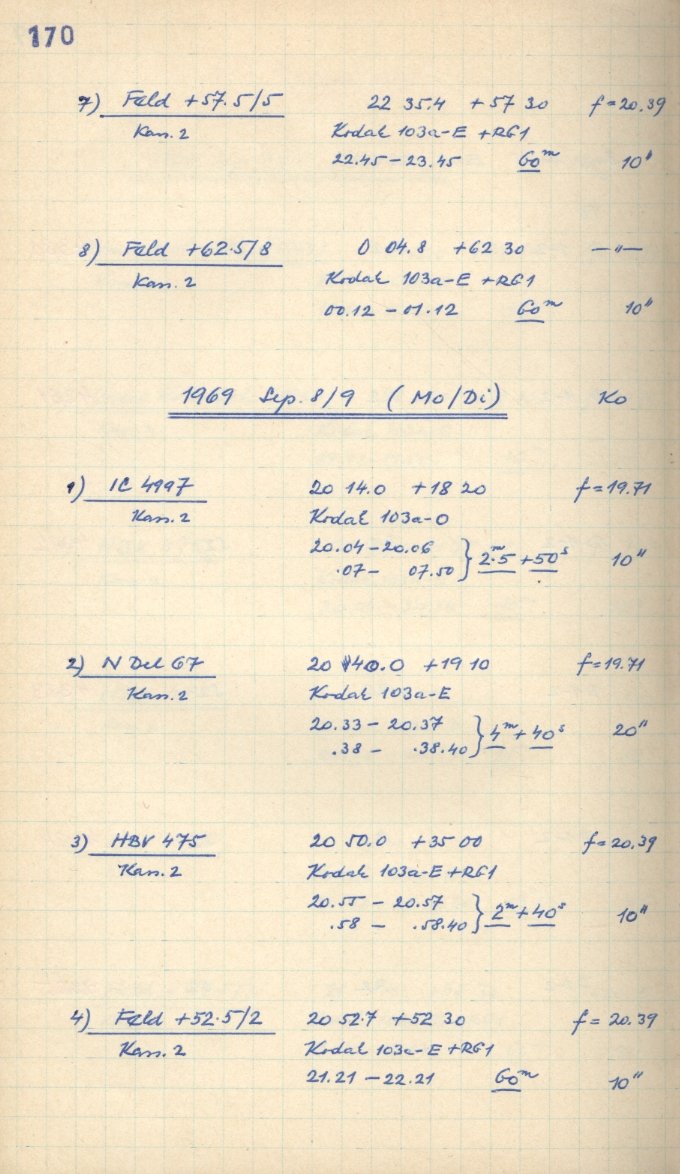 170
7) Feld +57.5/5 22 35.4 +57 30 f=20.39
Kass. 2 Kodak 103a-E +RG1
22.45-23.45 60m 10"
8) Feld +62.5/8 0 04.8 +62 30 —"—
Kass. 2 Kodak 103a-E +RG1
00.12-01.12 60m 10"
1969 Sep. 8/9 (Mo/Di) Ko
1) IC 4997 20 14.0 +18 20 f=19.71
Kass. 2 Kodak 103a-O
20.04-20.06 } 2m.5 +50s 10"
.07- 07.50
2) N Del 67 20 40.0 +19 10 f=19.71
Kass. 2 Kodak 103a-E
20.33-20.37 } 4m+40s 20"
.38- .38.40
3) HBV 475 20 50.0 +35 00 f=20.39
Kass. 2 Kodak 103a-E+RG1
20.55-20.57 } 2m+40s 10"
.58- .58.40
4) Feld +52.5/2 20 52.7 +52 30 f=20.39
Kass. 2 Kodak 103a-E+RG1
21.21-22.21 60m 10"